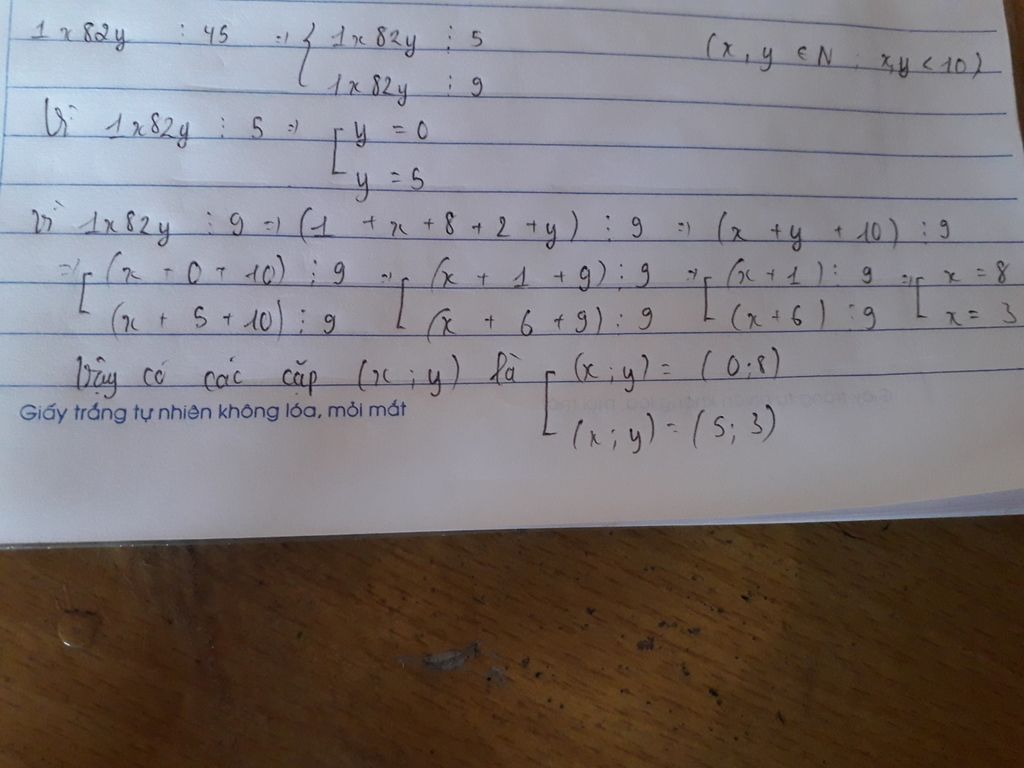 1x82y ⋮ 45 => { 1x82y ⋮ 5 (x, y ∈ N ; x,y < 10)
1x82y ⋮ 9
Vì 1x82y ⋮ 5 => [ y = 0
y = 5
Vì 1x82y ⋮ 9 => (1 + x + 8 + 2 + y) ⋮ 9 => (x + y + 10) ⋮ 9
=> [ (x + 0 + 10) ⋮ 9 => [ (x + 1 + 9) ⋮ 9 => [ (x + 1) ⋮ 9 => [ x = 8
(x + 5 + 10) ⋮ 9 (x + 6 + 9) ⋮ 9 (x + 6) ⋮ 9 x = 3
Vậy có các cặp (x ; y) là [ (x ; y) = (0 ; 8)
Giấy trắng tự nhiên không lóa, mỏi mắt
(x ; y) = (5 ; 3)